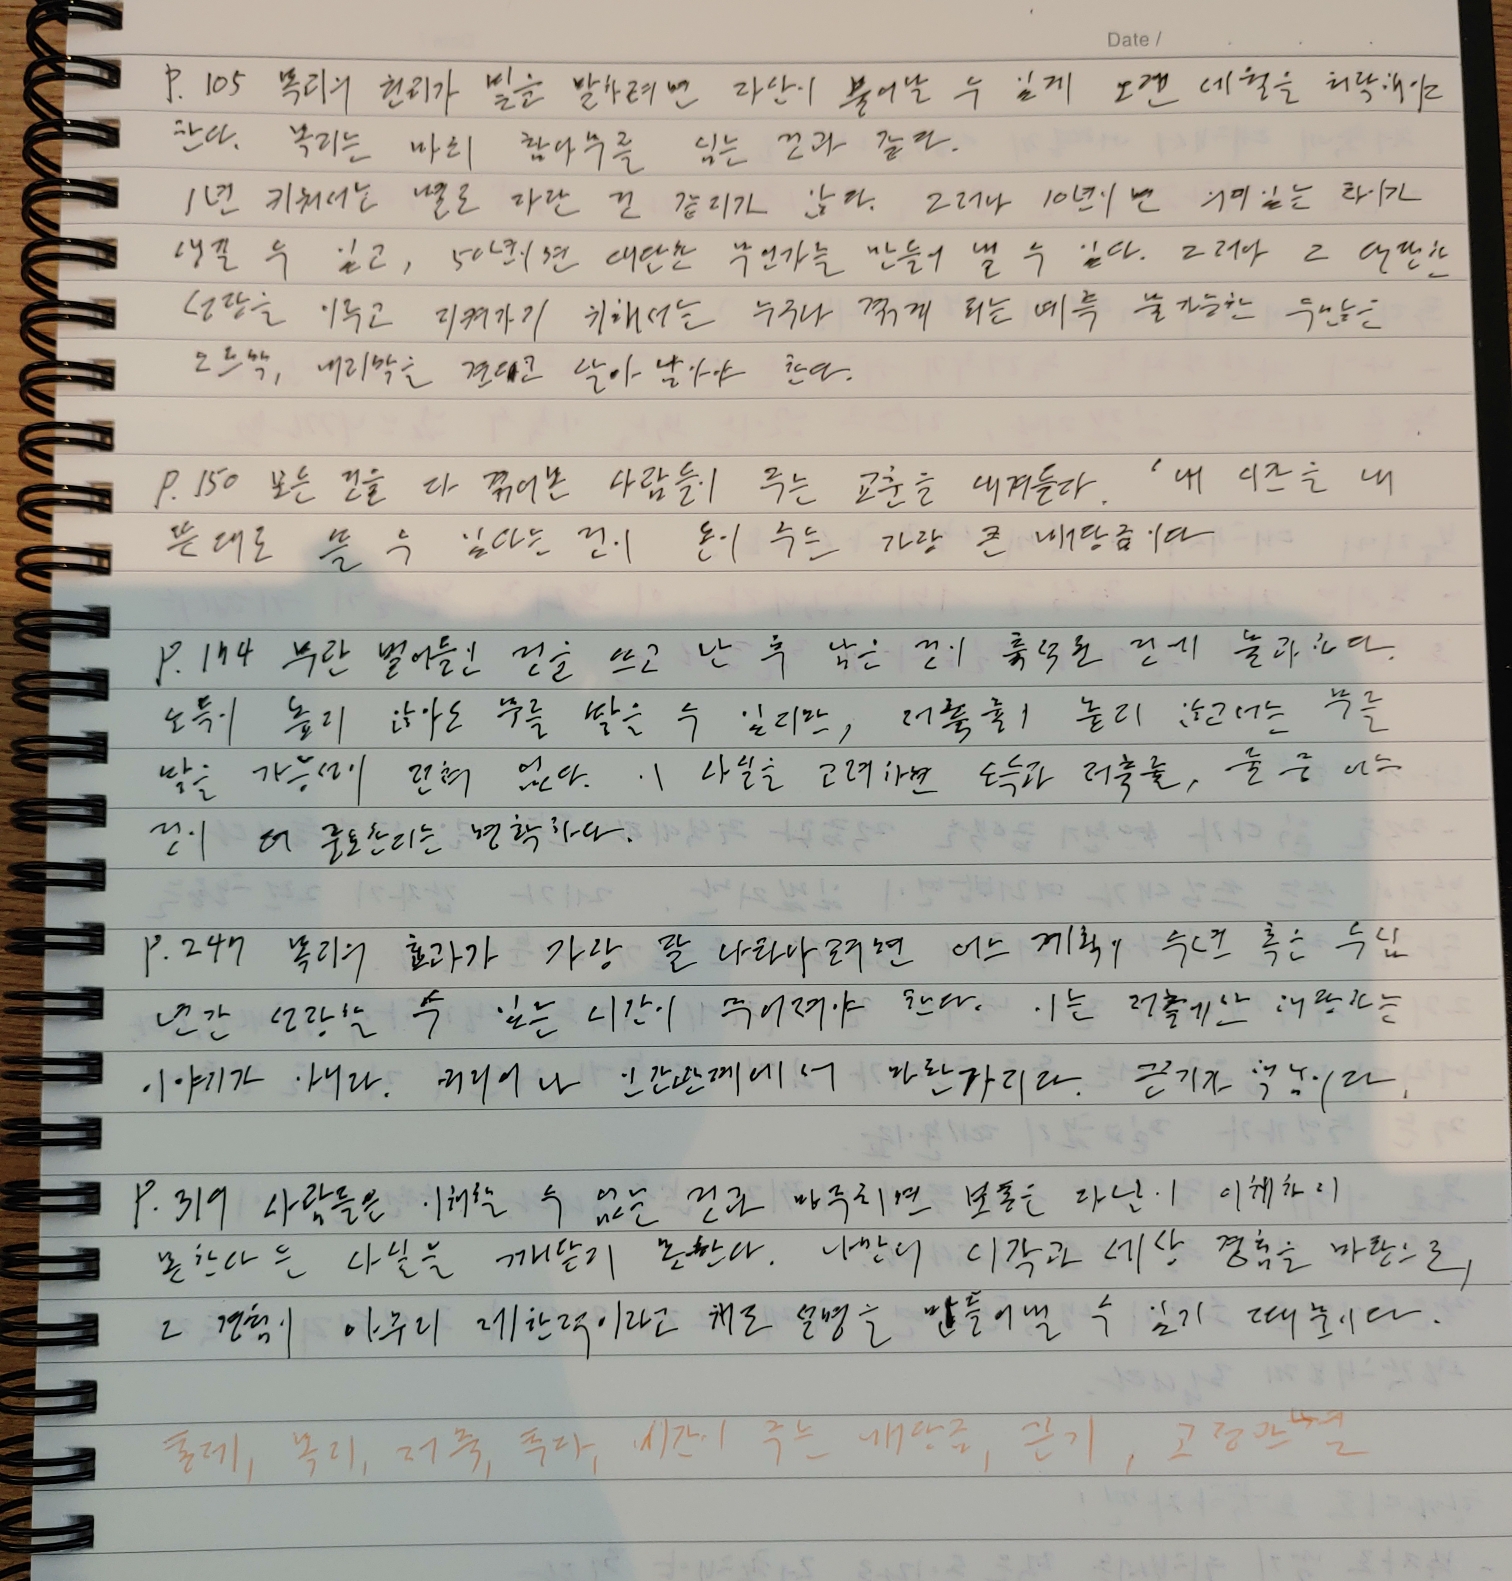 Date /
p. 105 복리의 원리가 빛을 발하려면 자산이 불어날 수 있게 오랜 세월을 허락해야
한다. 복리는 마치 참나무를 심는 것과 같다.
1년 키워서는 별로 자란 것 같지가 않다. 그러나 10년이면 의미있는 차이가
생길 수 있고, 50년이면 대단한 무언가를 만들어 낼 수 있다. 그러나 그 대단한
성장을 이루고 지켜가기 위해서는 누구나 겪게 되는 예측 불가능한 수많은
오르막, 내리막을 견디고 살아 남아야 한다.
p. 150 모든 것을 다 겪어본 사람들이 주는 교훈을 새겨듣다. ' 내 시간을 내
뜻대로 쓸 수 있다는 것이 돈이 주는 가장 큰 배당금이다
p. 174 부란 벌어들인 것을 쓰고 난 후 남은 것이 축적된 것에 불과하다.
소득이 높지 않아도 부를 쌓을 수 있지만, 저축률이 높지 않고서는 부를
쌓을 가능성이 전혀 없다. 이 사실을 고려하면 소득과 저축률, 둘 중 어느
것이 더 중요한지는 명확하다.
p. 247 복리의 효과가 가장 잘 나타나려면 어느 계획이 수년 혹은 수십
년간 성장할 수 있는 시간이 주어져야 한다. 이는 저축에만 해당하는
이야기가 아니다. 커리어나 인간관계에서 마찬가지다. 끈기가 핵심이다.
p. 319 사람들은 이해할 수 없는 것과 마주치면 보통은 자신이 이해하지
못한다는 사실을 깨닫지 못한다. 나만의 시각과 세상 경험을 바탕으로,
그 경험이 아무리 제한적이라고 해도 설명을 만들어낼 수 있기 때문이다.
통제, 복리, 저축, 투자, 시간이 주는 배당금, 끈기, 고정관념